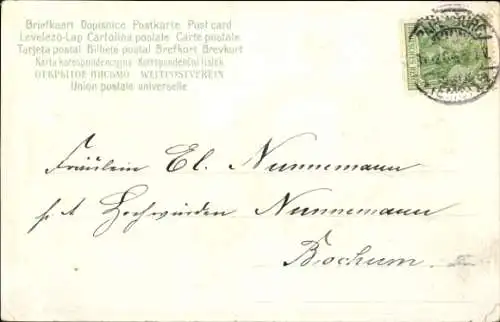 Briefkaart Dopisnice Postkarte Post card
Levelező-Lap Cartolina postale Carte postale
Tarjeta postal Bilhete postal Brefkort Brevkort
Karta korespondencyjna Korespondenční lístek
ОТКРЫТОЕ ПИСЬМО WELTPOSTVEREIN
Union postale universelle
Fräulein El. Nunnemann
p. A Hochwürden Nunnemann
Bochum.